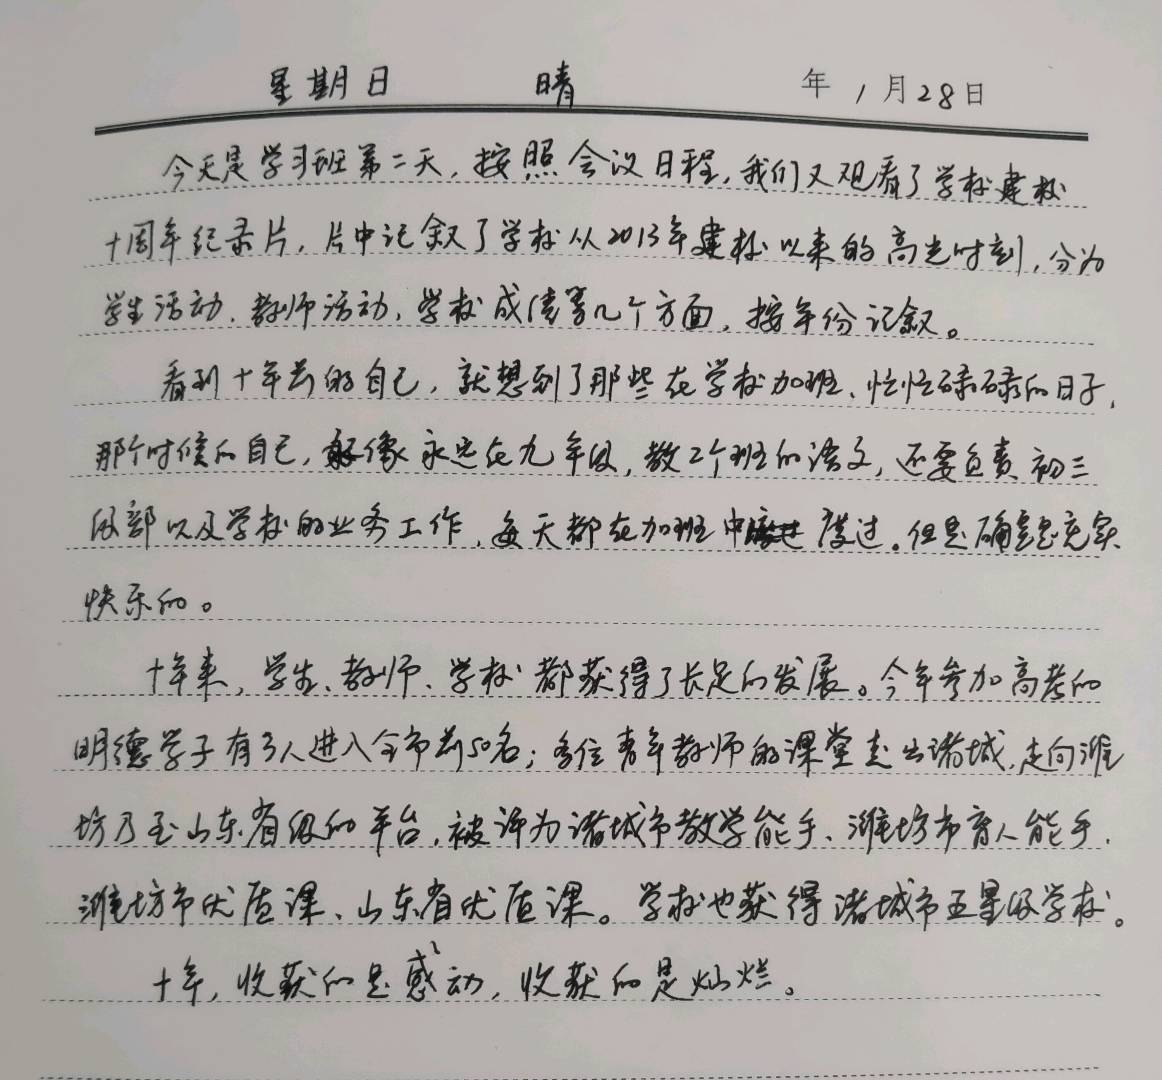 星期日 晴 年1月28日
今天是学习班第二天,按照会议日程,我们又观看了学校建校
十周年纪录片,片中记叙了学校从2013年建校以来的高光时刻,分为
学生活动、教师活动、学校成绩等几个方面,按年份记叙。
看到十年前的自己,就想到了那些在学校加班、忙忙碌碌的日子,
那个时候的自己,好像永远在九年级,教2个班的语文,还要负责初三
级部以及学校的业务工作,每天都在加班中度过。但是确实是充实
快乐的。
十年来,学生、教师、学校都获得了长足的发展。今年参加高考的
明德学子有3人进入全市前50名;多位青年教师的课堂走出诸城,走向潍
坊乃至山东省级的平台,被评为诸城市教学能手、潍坊市育人能手、
潍坊市优质课、山东省优质课。学校也获得诸城市五星级学校。
十年,收获的是感动,收获的是灿烂。